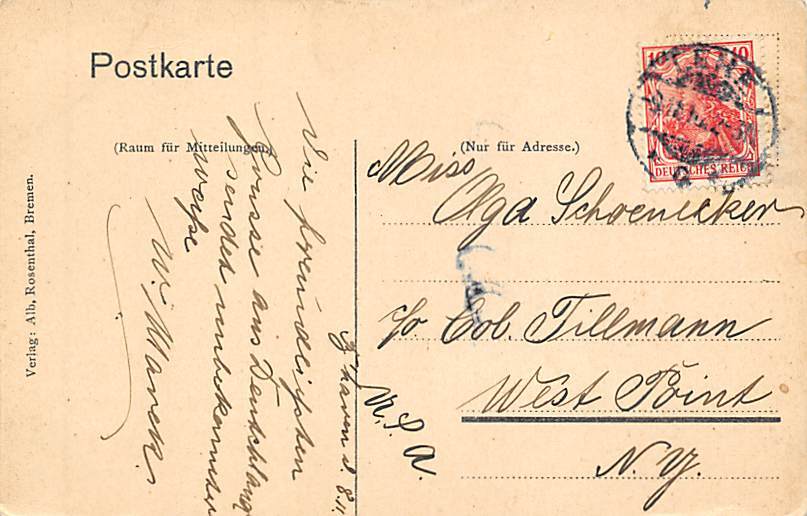 Postkarte
(Raum für Mitteilungen.)
B'haven d. 8.11.
Die freundlichsten
Grüsse aus Deutschland
sendet unbekannter
weise
W. Marck.
Verlag: Alb. Rosenthal, Bremen.
(Nur für Adresse.)
10 10
DEUTSCHES REICH
LEHE
Miss
Olga Schoenecker
c/o. Col. Tillmann
West Point
N. Y.
U. S. A.